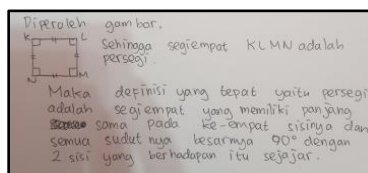 Diperoleh gambar.
K L
Sehingga segiempat KLMN adalah
persegi.
N M
Maka depinisi yang tepat yaitu persegi
adalah segiempat yang memiliki panjang
sama pada ke-empat sisinya dan
semua sudut nya besarnya 90° dengan
2 sisi yang berhadapan itu sejajar.